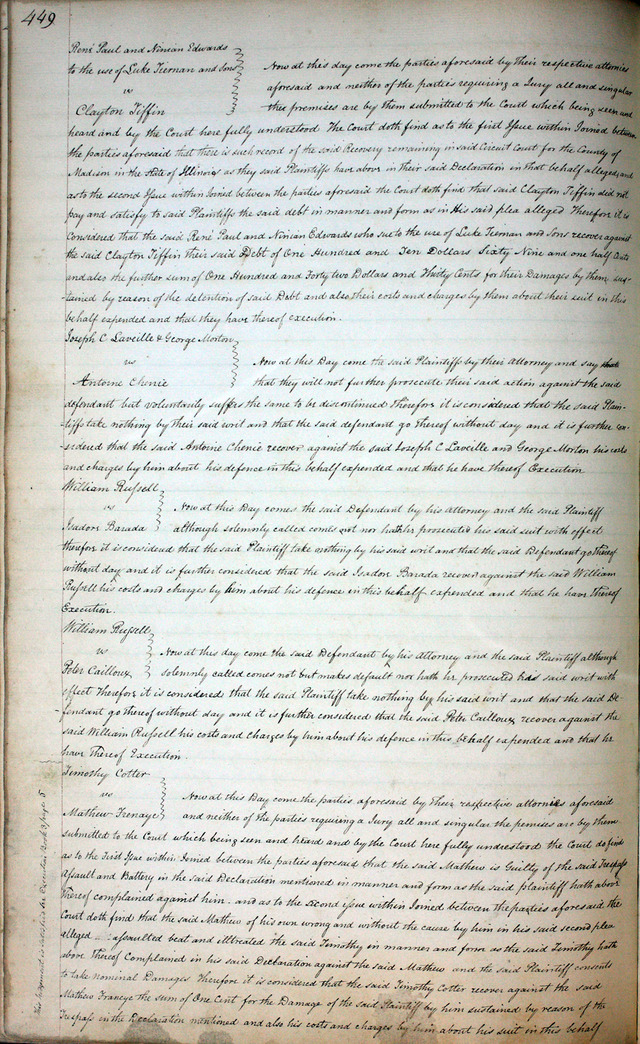 449
René Paul and Ninian Edwards
to the use of Luke Tiernan and Sons
vs
Clayton Tiffin
Now at this day come the parties aforesaid by their respective attornies
aforesaid and neither of the parties requiring a Jury all and singular
the premises are by them submitted to the Court which being seen and
heard and by the Court here fully understood The Court doth find as to the first Issue within Joined between
the parties aforesaid that there is such record of the said Recovery remaining in said Circuit Court for the County of
Madison in the state of Illinois as they said Plaintiffs have above in their said Declaration in that behalf alleged, and
as to the second Issue within Joined between the parties aforesaid the Court doth find that said Clayton Tiffin did not
pay and satisfy to said Plaintiffs the said debt in manner and form as in His said plea alleged Therefore it is
Considered that the said René Paul and Ninian Edwards who sue to the use of Luke Tiernan and Sons recover against
the said Clayton Tiffin their said Debt of One Hundred and Ten Dollars Sixty Nine and one half Cents
and also the further sum of One Hundred and Forty two Dollars and Thirty Cents for their Damages by them sus-
tained by reason of the detention of said Debt and also their costs and charges by them about their suit in this
behalf expended and that they have thereof execution.
Joseph C Laveille & George Morton
vs
Antoine Chenie
Now at this Day come the said Plaintiffs by their Attorney and say
that they will not further prosecute their said action against the said
defendant but voluntarily suffers the same to be discontinued Therefore it is considered that the said Plain-
tiffs take nothing by their said writ and that the said defendant go thereof without day and it is further con-
sidered that the said Antoine Chenie recover against the said Joseph C Laveille and George Morton his costs
and charges by him about his defence in this behalf expended and that he have thereof Execution
William Russell
vs
Isadon Barada
Now at this Day comes the said Defendant by his Attorney and the said Plaintiff
although solemnly called comes not nor hath he prosecuted his said suit with effect
therefore it is considered that the said Plaintiff take nothing by his said writ and that the said Defendant go thereof
without day and it is further considered that the said Isadon Barada recover against the said William
Russell his costs and charges by him about his defence in this behalf expended and that he have thereof
Execution.
William Russell
vs
Peter Cailloux
Now at this day come the said Defendant by his Attorney and the said Plaintiff although
solemnly called comes not but makes default nor hath he prosecuted his said writ with
effect Therefore it is considered that the said Plaintiff take nothing by his said writ and that the said De-
fendant go thereof without day and it is further considered that the said Peter Cailloux recover against the
said William Russell his costs and charges by him about his defence in this behalf expended and that he
have Thereof Execution.
Timothy Cotter
vs
Mathew Franaye
Now at this Day come the parties aforesaid by their respective attornies aforesaid
and neither of the parties requiring a Jury all and singular the premises are by them
submitted to the Court which being seen and heard and by the Court here fully understood the Court do find
as to the First Issue within Joined between the parties aforesaid that the said Mathew is Guilty of the said Trespass
Assault and Battery in the said Declaration mentioned in manner and form as the said plaintiff hath above
thereof complained against him. and as to the second issue within Joined between the parties aforesaid the
Court doth find that the said Mathew of his own wrong and without the cause by him in his said second plea
alleged assaulted beat and illtreated the said Timothy in manner and form as the said Timothy hath
above thereof Complained in his said Declaration against the said Mathew and the said Plaintiff consents
to take nominal Damages Therefore it is considered that the said Timothy Cotter recover against the said
Mathew Franaye the sum of One Cent for the Damage of the said Plaintiff by him sustained by reason of the
Trespass in the Declaration mentioned and also his costs and charges by him about his suit in this behalf